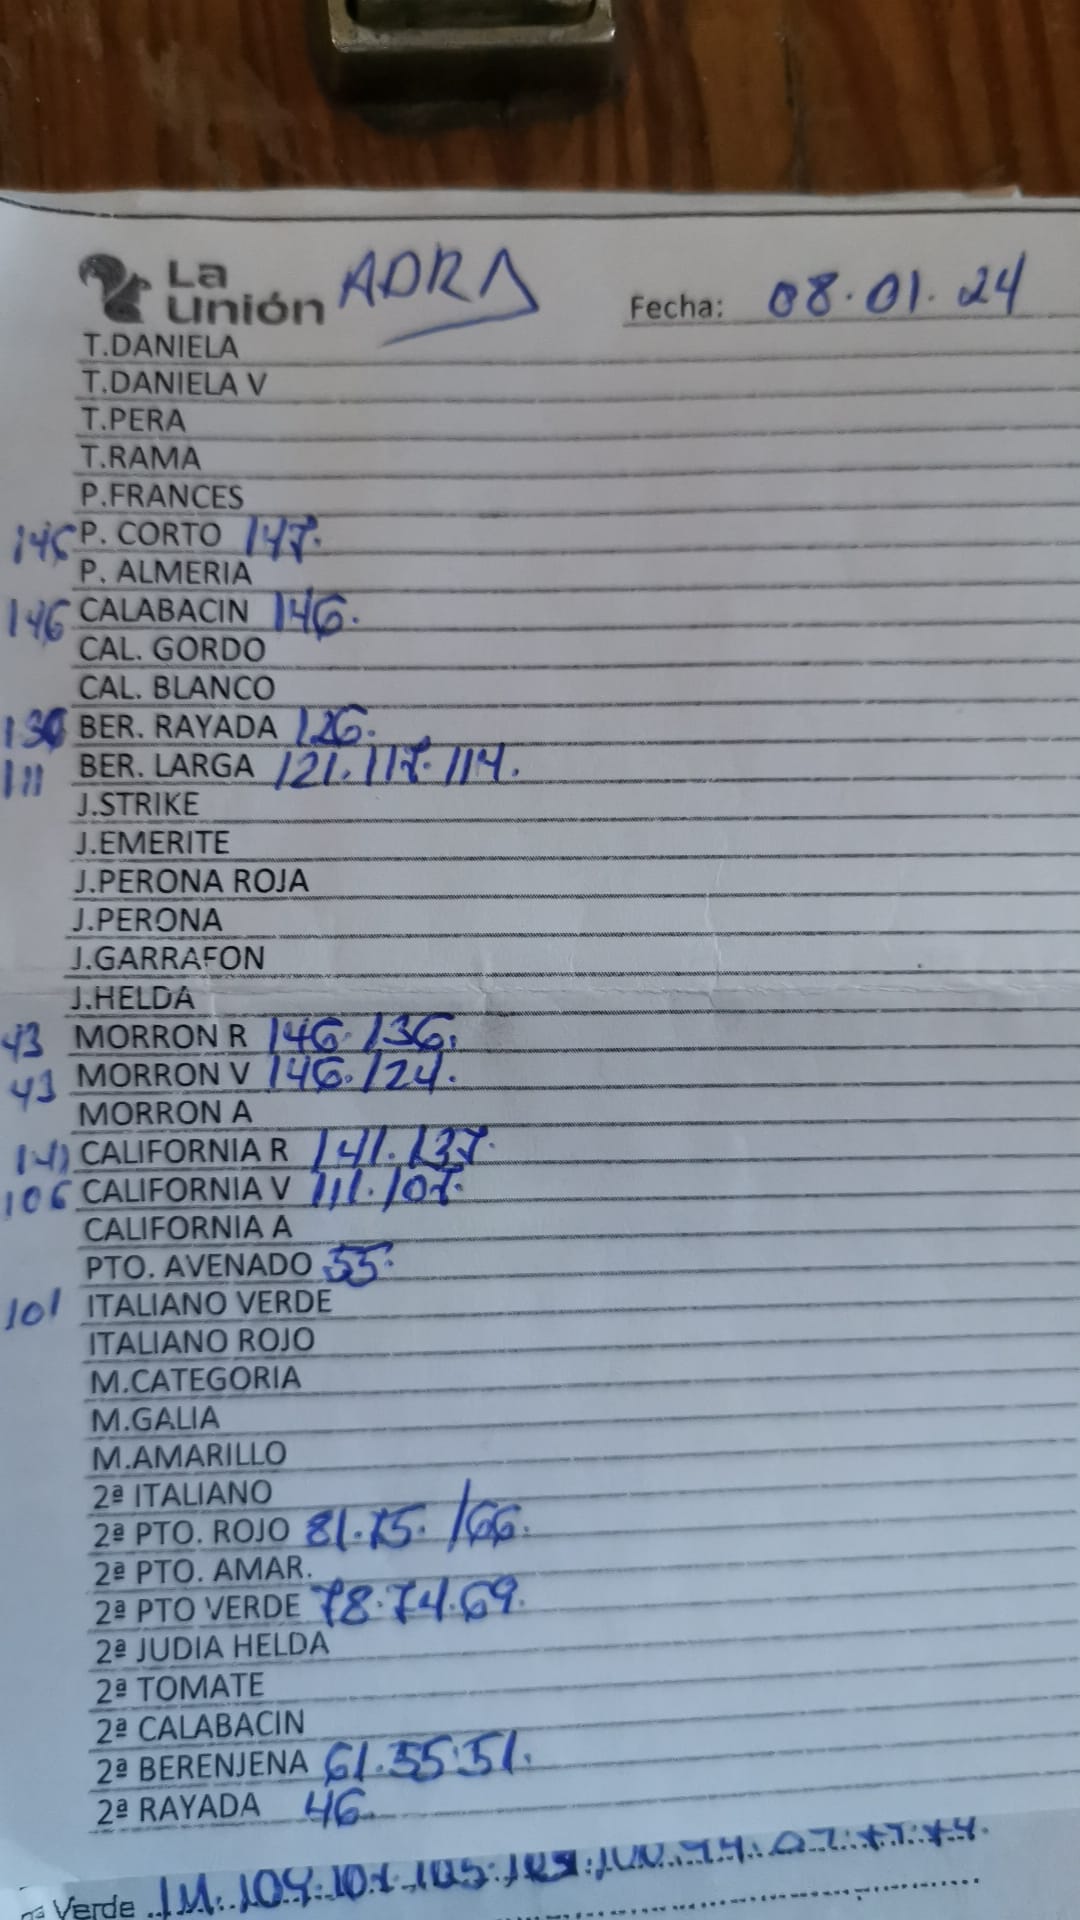 La Unión ADRA Fecha: 08.01.24
T.DANIELA
T.DANIELA V
T.PERA
T.RAMA
P.FRANCES
P. CORTO 147.
P. ALMERIA
146 CALABACIN 146.
CAL. GORDO
CAL. BLANCO
BER. RAYADA 126.
111 BER. LARGA 121.117.114.
J.STRIKE
J.EMERITE
J.PERONA ROJA
J.PERONA
J.GARRAFON
J.HELDA
43 MORRON R 146. 136.
43 MORRON V 146. 124.
MORRON A
141 CALIFORNIA R 141.137.
106 CALIFORNIA V 111.107.
CALIFORNIA A
PTO. AVENADO 55.
101 ITALIANO VERDE
ITALIANO ROJO
M.CATEGORIA
M.GALIA
M.AMARILLO
2ª ITALIANO
2ª PTO. ROJO 81.75. /66.
2ª PTO. AMAR.
2ª PTO VERDE 78.74.69.
2ª JUDIA HELDA
2ª TOMATE
2ª CALABACIN
2ª BERENJENA 61.55.51.
2ª RAYADA 46.
Verde